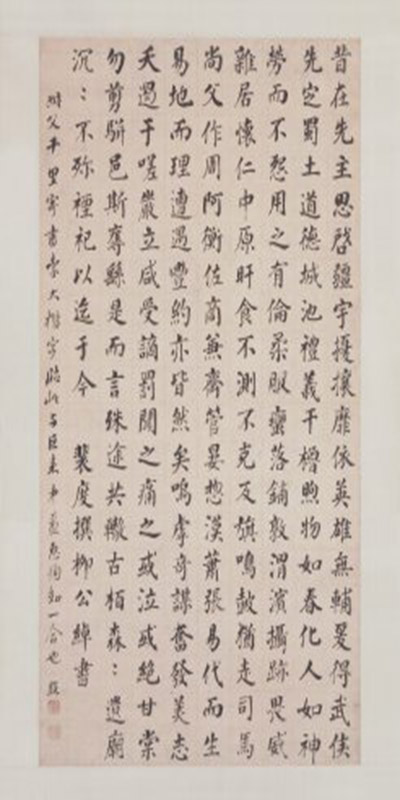 昔在先主思啓疆宇擾攘靡依英雄無輔爰得武侯
先定蜀土道德城池禮義干櫓煦物如春化人如神
勞而不怨用之有倫柔服蠻落鋪敦渭濱攝跡畏威
雜居懷仁中原旰食不測不克反旗鳴鼓猶走司馬
尚父作周阿衡佐商兼齊管晏總漢蕭張易代而生
易地而理遭遇豐約亦皆然矣嗚虖奇謀奮發美志
夭遏于嗟嚴立咸受謫罰聞之痛之或泣或絕甘棠
勿剪駢邑斯奪繇是而言殊途共轍古柏森:遺廟
沉:不殄禋祀以迄于今 裴度撰柳公綽書
父平望寄書索大楷字臨此